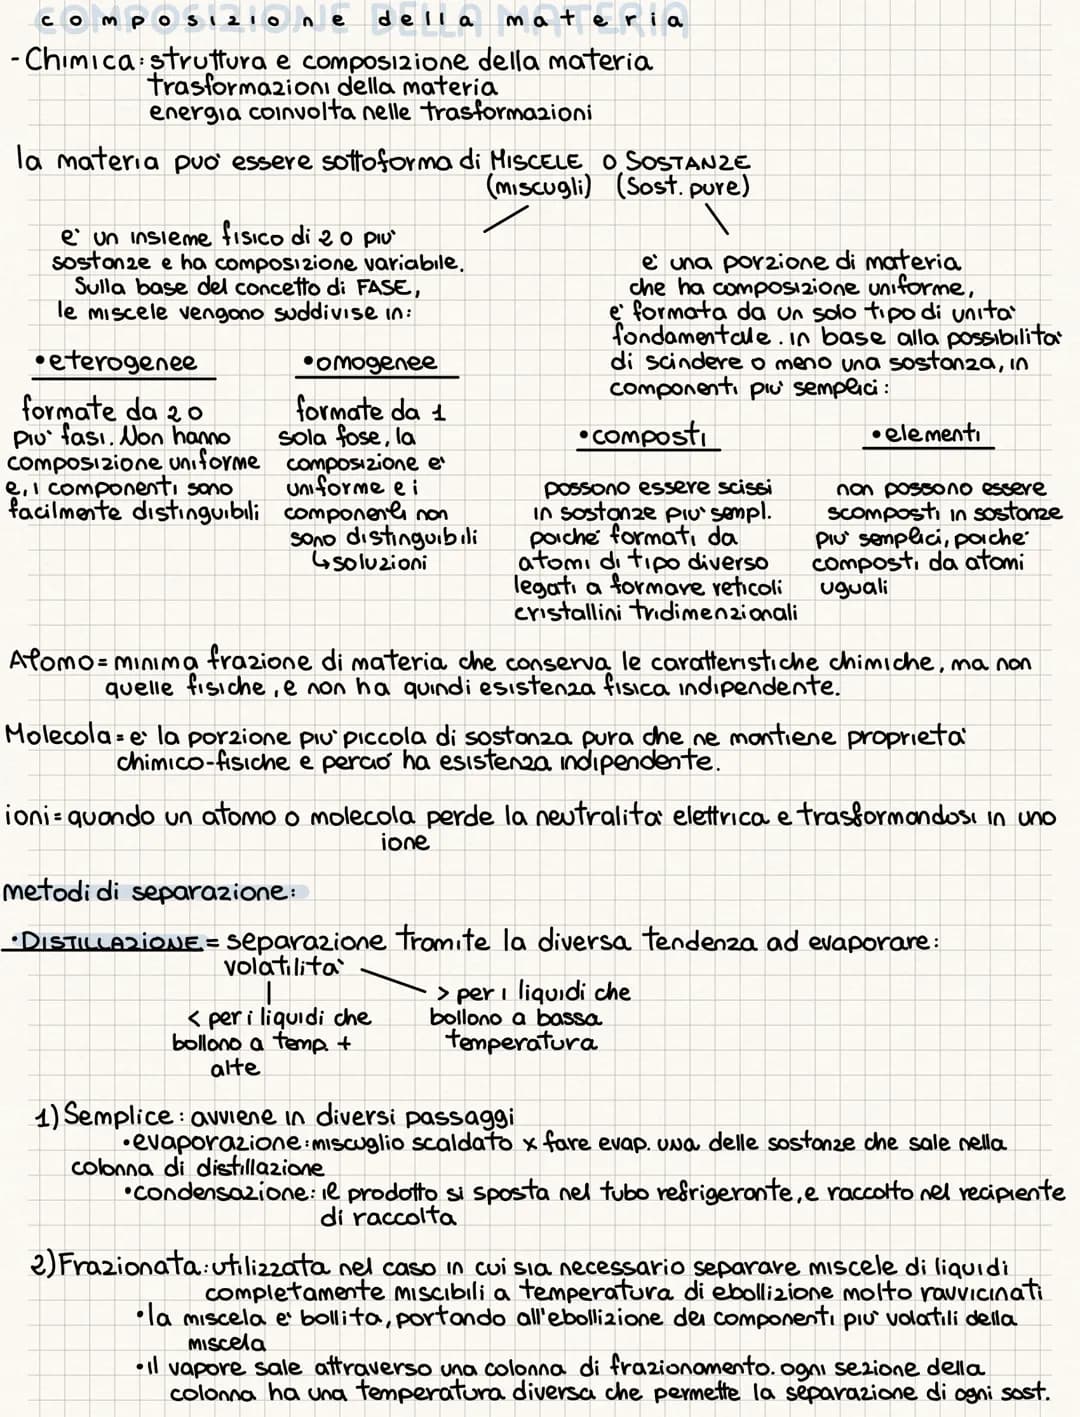 composizione della materia
- Chimica: struttura e composizione della materia
trasformazioni della materia
energia coinvolta nelle trasformazioni
la materia può essere sottoforma di MISCELE O SOSTANZE
(miscugli) (Sost. pure)
e' un insieme fisico di 2 o più
sostanze e ha composizione variabile.
Sulla base del concetto di FASE,
le miscele vengono suddivise in:
e' una porzione di materia
che ha composizione uniforme,
e' formata da un solo tipo di unità
fondamentale. in base alla possibilità
di scindere o meno una sostanza, in
componenti più semplici:
•eterogenee
formate da 2 o
più fasi. Non hanno
composizione uniforme
e, i componenti sono
facilmente distinguibili
•omogenee
formate da 1
sola fase, la
composizione e'
uniforme e i
componenti non
sono distinguibili
↳soluzioni
•composti
possono essere scissi
in sostanze più sempl.
poiché formati da
atomi di tipo diverso
legati a formare reticoli
cristallini tridimenzionali
•elementi
non possono essere
scomposti in sostanze
più semplici, poiché
composti da atomi
uguali
Atomo= minima frazione di materia che conserva le caratteristiche chimiche, ma non
quelle fisiche, e non ha quindi esistenza fisica indipendente.
Molecola= e' la porzione più piccola di sostanza pura che ne mantiene proprietà
chimico-fisiche e perciò ha esistenza indipendente.
ioni= quando un atomo o molecola perde la neutralità elettrica e trasformandosi in uno
ione
metodi di separazione:
•DISTILLAZIONE= separazione tramite la diversa tendenza ad evaporare:
volatilità
< per i liquidi che
bollono a temp. +
alte
> per i liquidi che
bollono a bassa
temperatura
1) Semplice: avviene in diversi passaggi
•evaporazione: miscuglio scaldato x fare evap. una delle sostanze che sale nella
colonna di distillazione
•condensazione: il prodotto si sposta nel tubo refrigerante, e raccolto nel recipiente
di raccolta
2) Frazionata: utilizzata nel caso in cui sia necessario separare miscele di liquidi
completamente miscibili a temperatura di ebollizione molto ravvicinati
•la miscela e' bollita, portando all'ebollizione dei componenti più volatili della
miscela
•il vapore sale attraverso una colonna di frazionamento. ogni sezione della
colonna ha una temperatura diversa che permette la separazione di ogni sost.